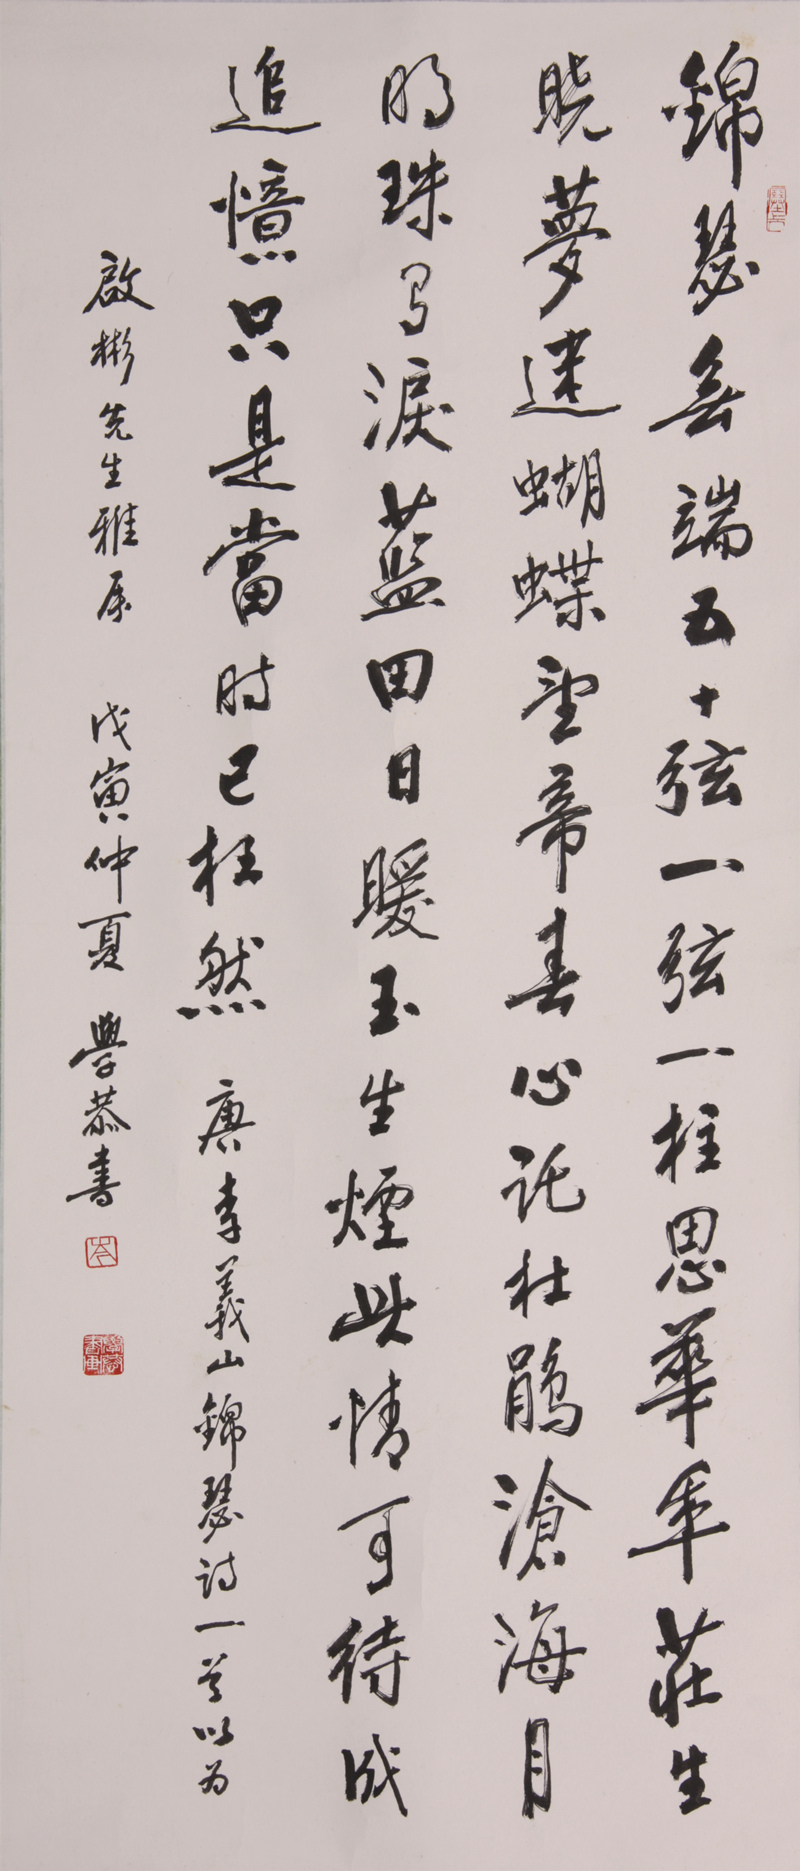 錦瑟無端五十弦一弦一柱思華年莊生
曉夢迷蝴蝶望帝春心託杜鵑滄海月
明珠有淚藍田日暖玉生煙此情可待成
追憶只是當時已枉然 唐李義山錦瑟詩一首以为
啟彬先生雅屬 戊寅仲夏 學恭書